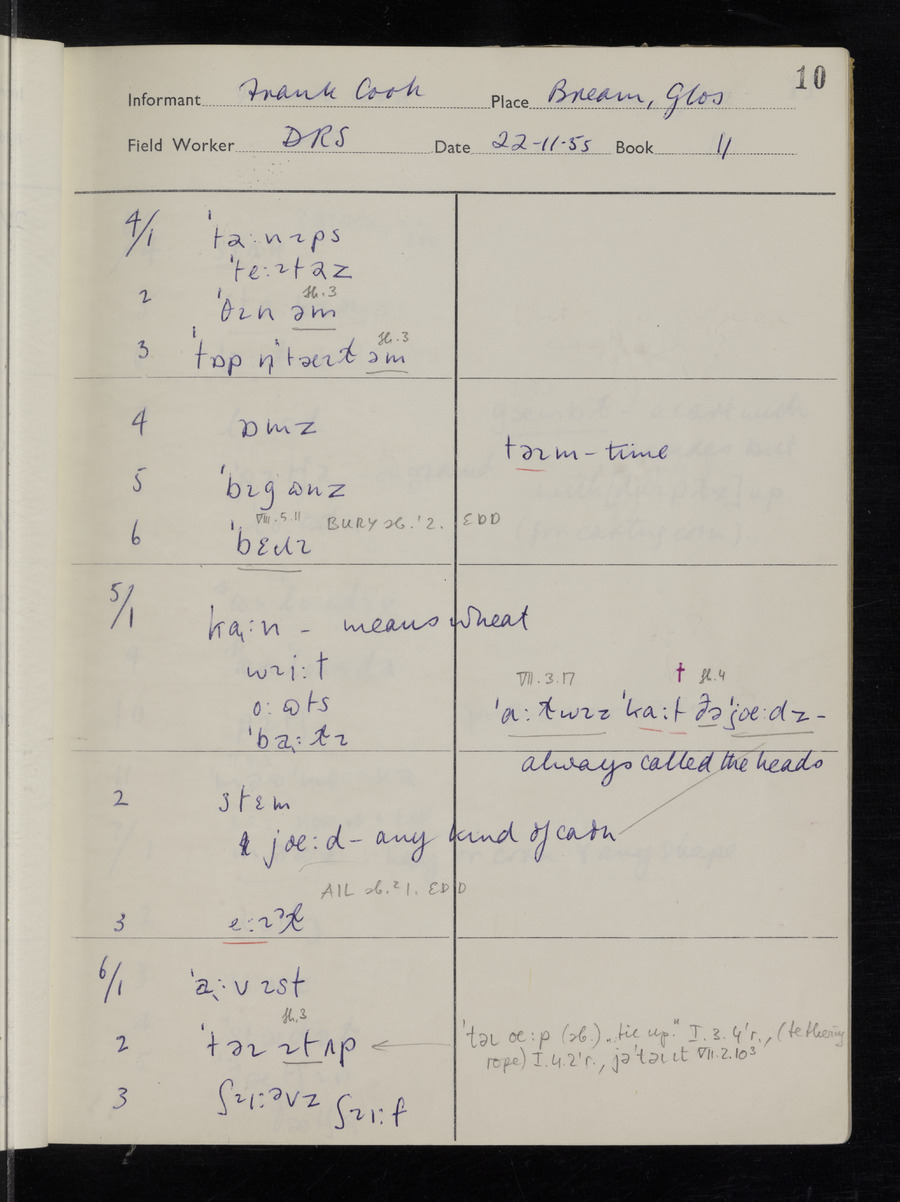 10
Informant Frank Cook Place Bream, Glos
Field Worker DRS Date 22-11-55 Book II
4/1 ˈtəːnɪps
ˈteːɪtəz
2 ˈθɪn əm sb.3
3 ˈtɒp n̩ ˈtəɪɫ əm sb.3
4 ɒmz
təɪm – time
5 ˈbɪgɷnz
6 ˈbɛɹɪ VIII.5.11 BURY sb.'2. EDD
5/1 kaːn – means wheat
wɪiːt
oːɷts
ˈbaːɫɪ
VII.3.17 † sb.4
ˈaːɫwɪz ˈkaːt ðə ˈjœːdz –
always called the heads
2 stɛm
jœːd – any kind of corn
AIL sb.²1. EDD
3 eːɪᵊɫ
6/1 ˈaːvɪst
2 ˈtəɪ ɪt ʌp sb.3
ˈtəɪ œːp (sb.) „tie up" I.3.4ʹr., (tethering
rope) I.4.2ʹr., jəˈtəɪt VII.2.10³
3 ʃɪiːəvz ʃɪiːf